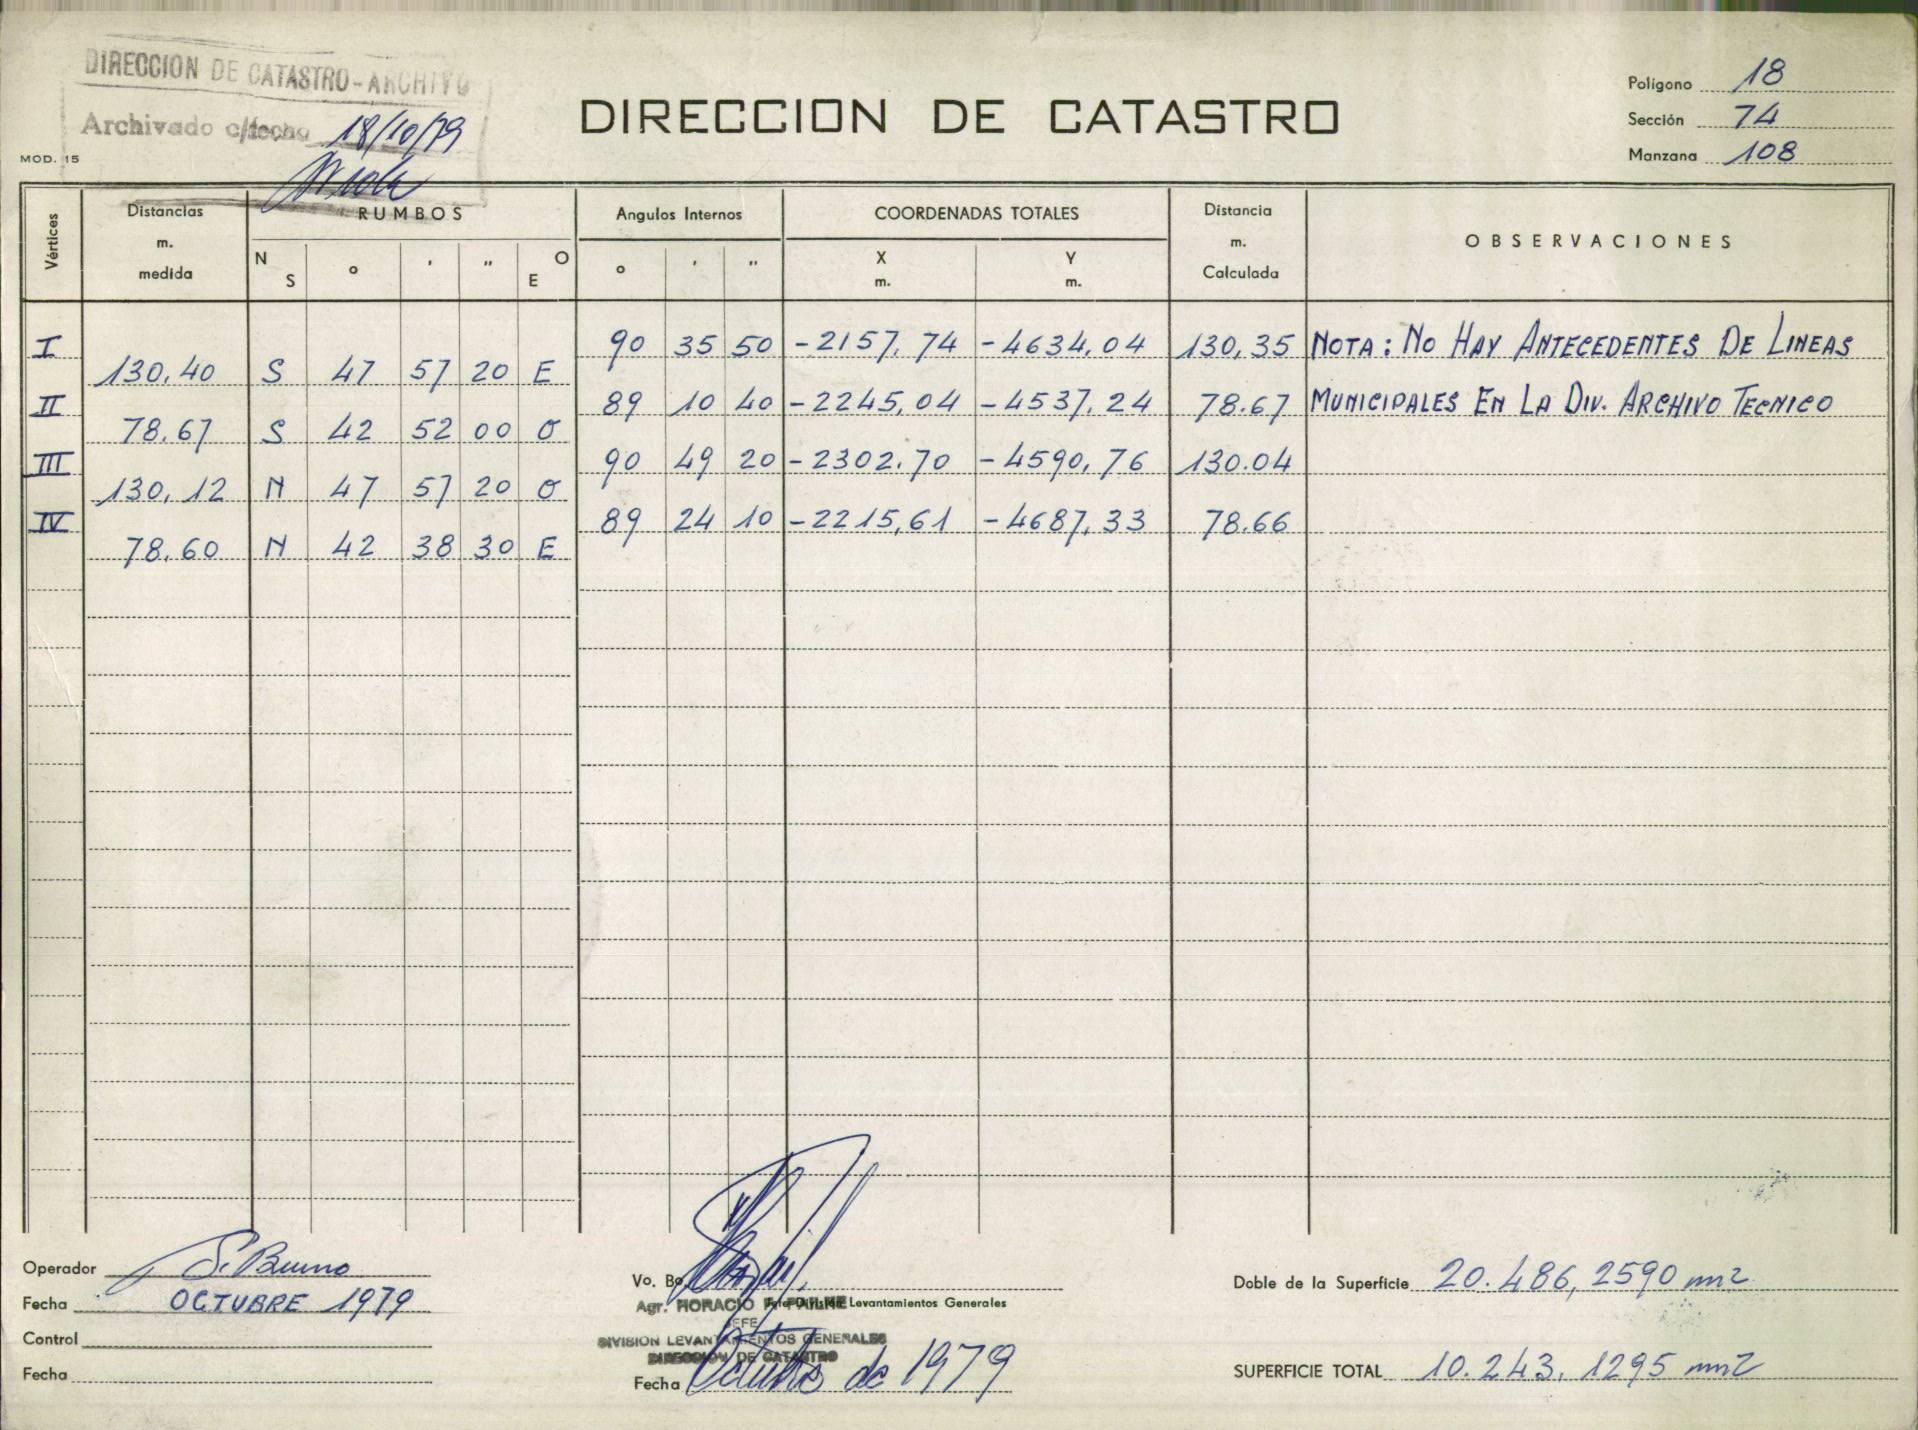 DIRECCION DE CATASTRO-ARCHIVO
Archivado c/fecha 18/10/79
MOD. 15
DIRECCION DE CATASTRO
Polígono 18
Sección 74
Manzana 108
Vértices
Distancias m. medida
RUMBOS
N S ° ' " O E
Angulos Internos
° ' "
COORDENADAS TOTALES
X m. Y m.
Distancia m. Calculada
OBSERVACIONES
I 90 35 50 -2157,74 -4634,04 130,35 NOTA: NO HAY ANTECEDENTES DE LINEAS
130,40 S 47 57 20 E
II 89 10 40 -2245,04 -4537,24 78.67 MUNICIPALES EN LA DIV. ARCHIVO TECNICO
78.67 S 42 52 00 O
III 90 49 20 -2302.70 -4590,76 130.04
130,12 N 47 57 20 O
IV 89 24 10 -2215,61 -4687,33 78.66
78.60 N 42 38 30 E
Operador S. Bruno
Fecha OCTUBRE 1979
Control
Fecha
Vo. Bo.
Agr. HORACIO Levantamientos Generales
JEFE
DIVISION LEVANTAMIENTOS GENERALES
DIRECCION DE CATASTRO
Fecha Octubre de 1979
Doble de la Superficie 20.486,2590 m2
SUPERFICIE TOTAL 10.243,1295 m2